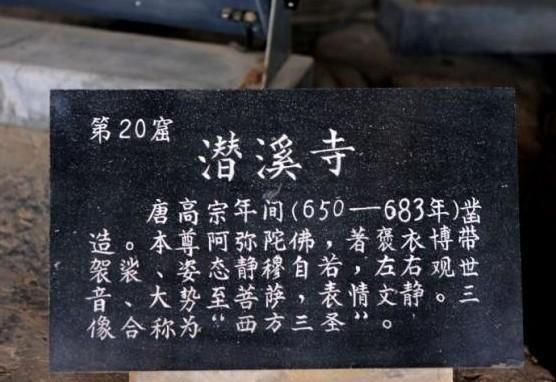 第20窟
潜溪寺
唐高宗年间(650—683年)凿
造。本尊阿弥陀佛，著褒衣博带
袈裟、姿态静穆自若，左右观世
音、大势至菩萨，表情文静。三
像合称为“西方三圣”。